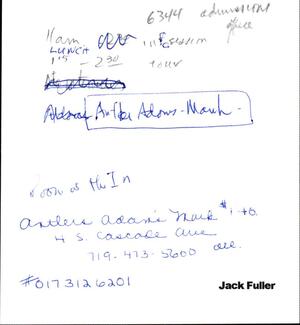 6344 admissions
office
11am info session
LUNCH
1 15 - 2 30 tour
Antler Adams-Mark
Room at the In
Antlers Adam's Mark
4 S. Cascade Ave
719-473-5600
#0173126201
Jack Fuller